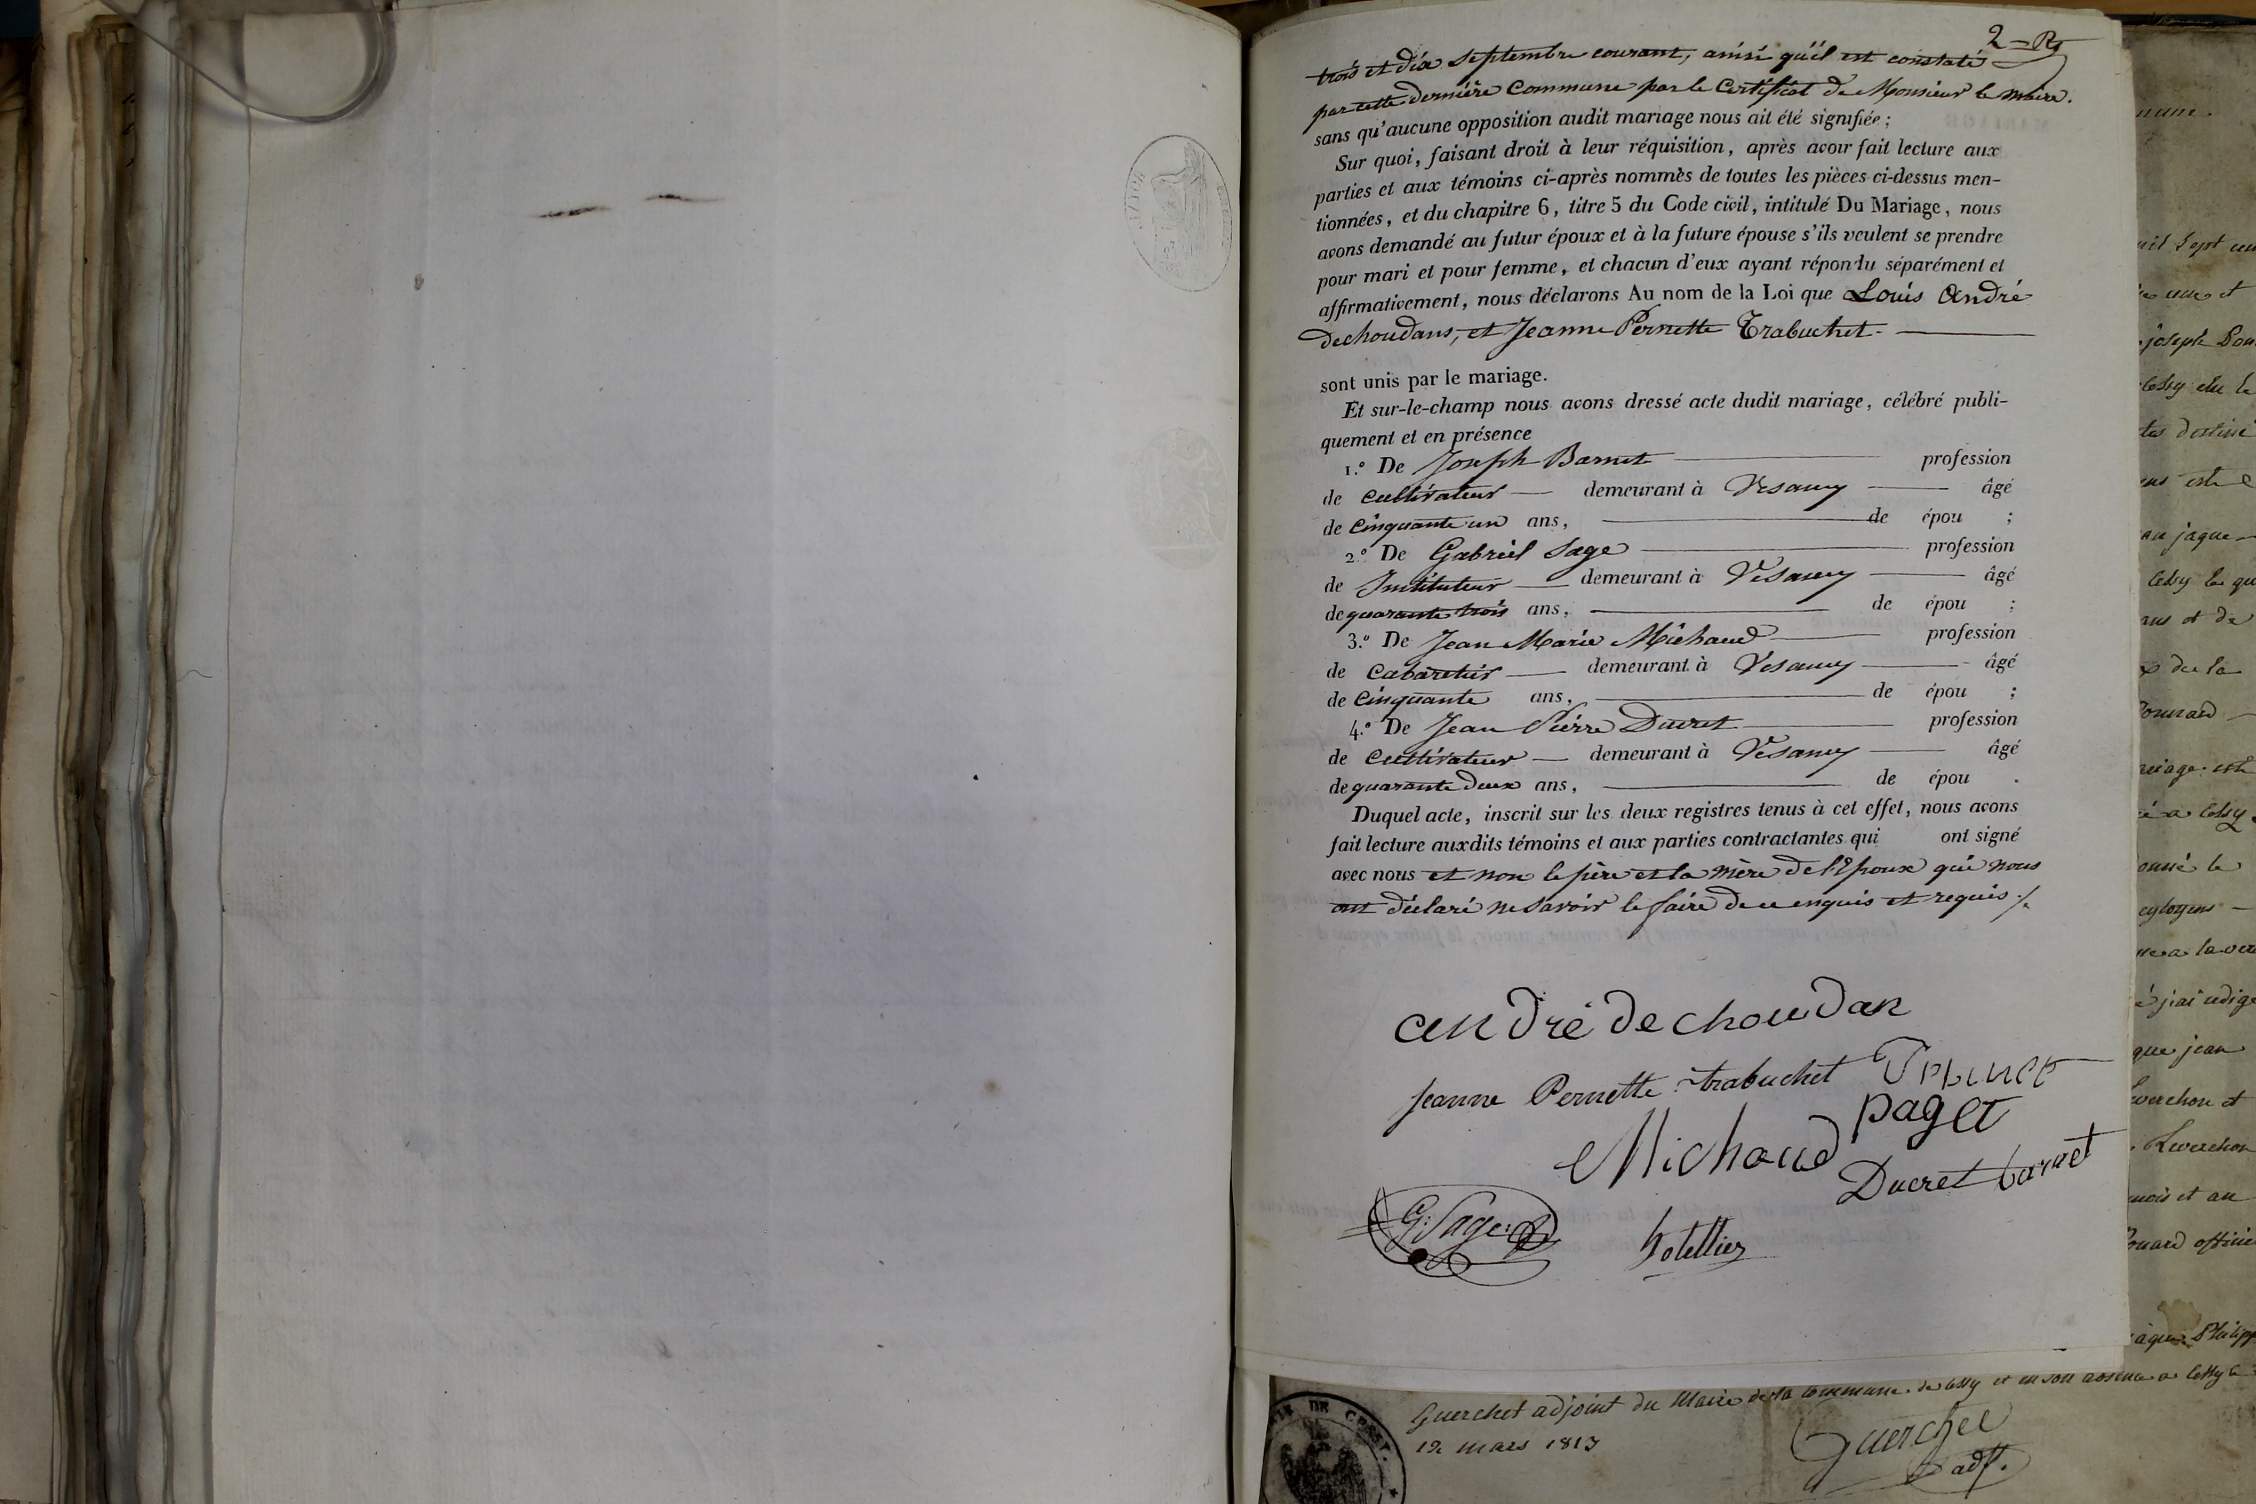 2
trois et dix septembre courant, ainsi qu'il est constaté
par cette dernière Commune par le Certificat de Monsieur le maire.
sans qu'aucune opposition audit mariage nous ait été signifiée ;
Sur quoi, faisant droit à leur réquisition, après avoir fait lecture aux
parties et aux témoins ci-après nommés de toutes les pièces ci-dessus men-
tionnées, et du chapitre 6, titre 5 du Code civil, intitulé Du Mariage, nous
avons demandé au futur époux et à la future épouse s'ils veulent se prendre
pour mari et pour femme, et chacun d'eux ayant répondu séparément et
affirmativement, nous déclarons Au nom de la Loi que Louis André
dechoudans, et Jeanne Pernette Trabuchet.
sont unis par le mariage.
Et sur-le-champ nous avons dressé acte dudit mariage, célébré publi-
quement et en présence
1.° De Joseph Barnet profession
de cultivateur demeurant à Vesancy âgé
de cinquante un ans, de épou ;
2.° De Gabriel Sage profession
de Instituteur demeurant à Vesancy âgé
de quarante trois ans, de épou ;
3.° De Jean Marie Michaud profession
de Cabaretier demeurant à Vesancy âgé
de cinquante ans, de épou ;
4.° De Jean Pierre Ducret profession
de cultivateur demeurant à Vesancy âgé
de quarante deux ans, de épou .
Duquel acte, inscrit sur les deux registres tenus à cet effet, nous avons
fait lecture auxdits témoins et aux parties contractantes qui ont signé
avec nous et non le père et la mère de l'Epoux qui nous
ont déclaré ne savoir le faire de ce enquis et requis ./.
andré dechoudan
Jeanne Pernette trabuchet
paget
Michaud
Ducret barnet
G: Sage
Guerchet adjoint du Maire de la commune de Cessy et en son absence a Cessy le
12 mars 1813
Guerchet
adj.